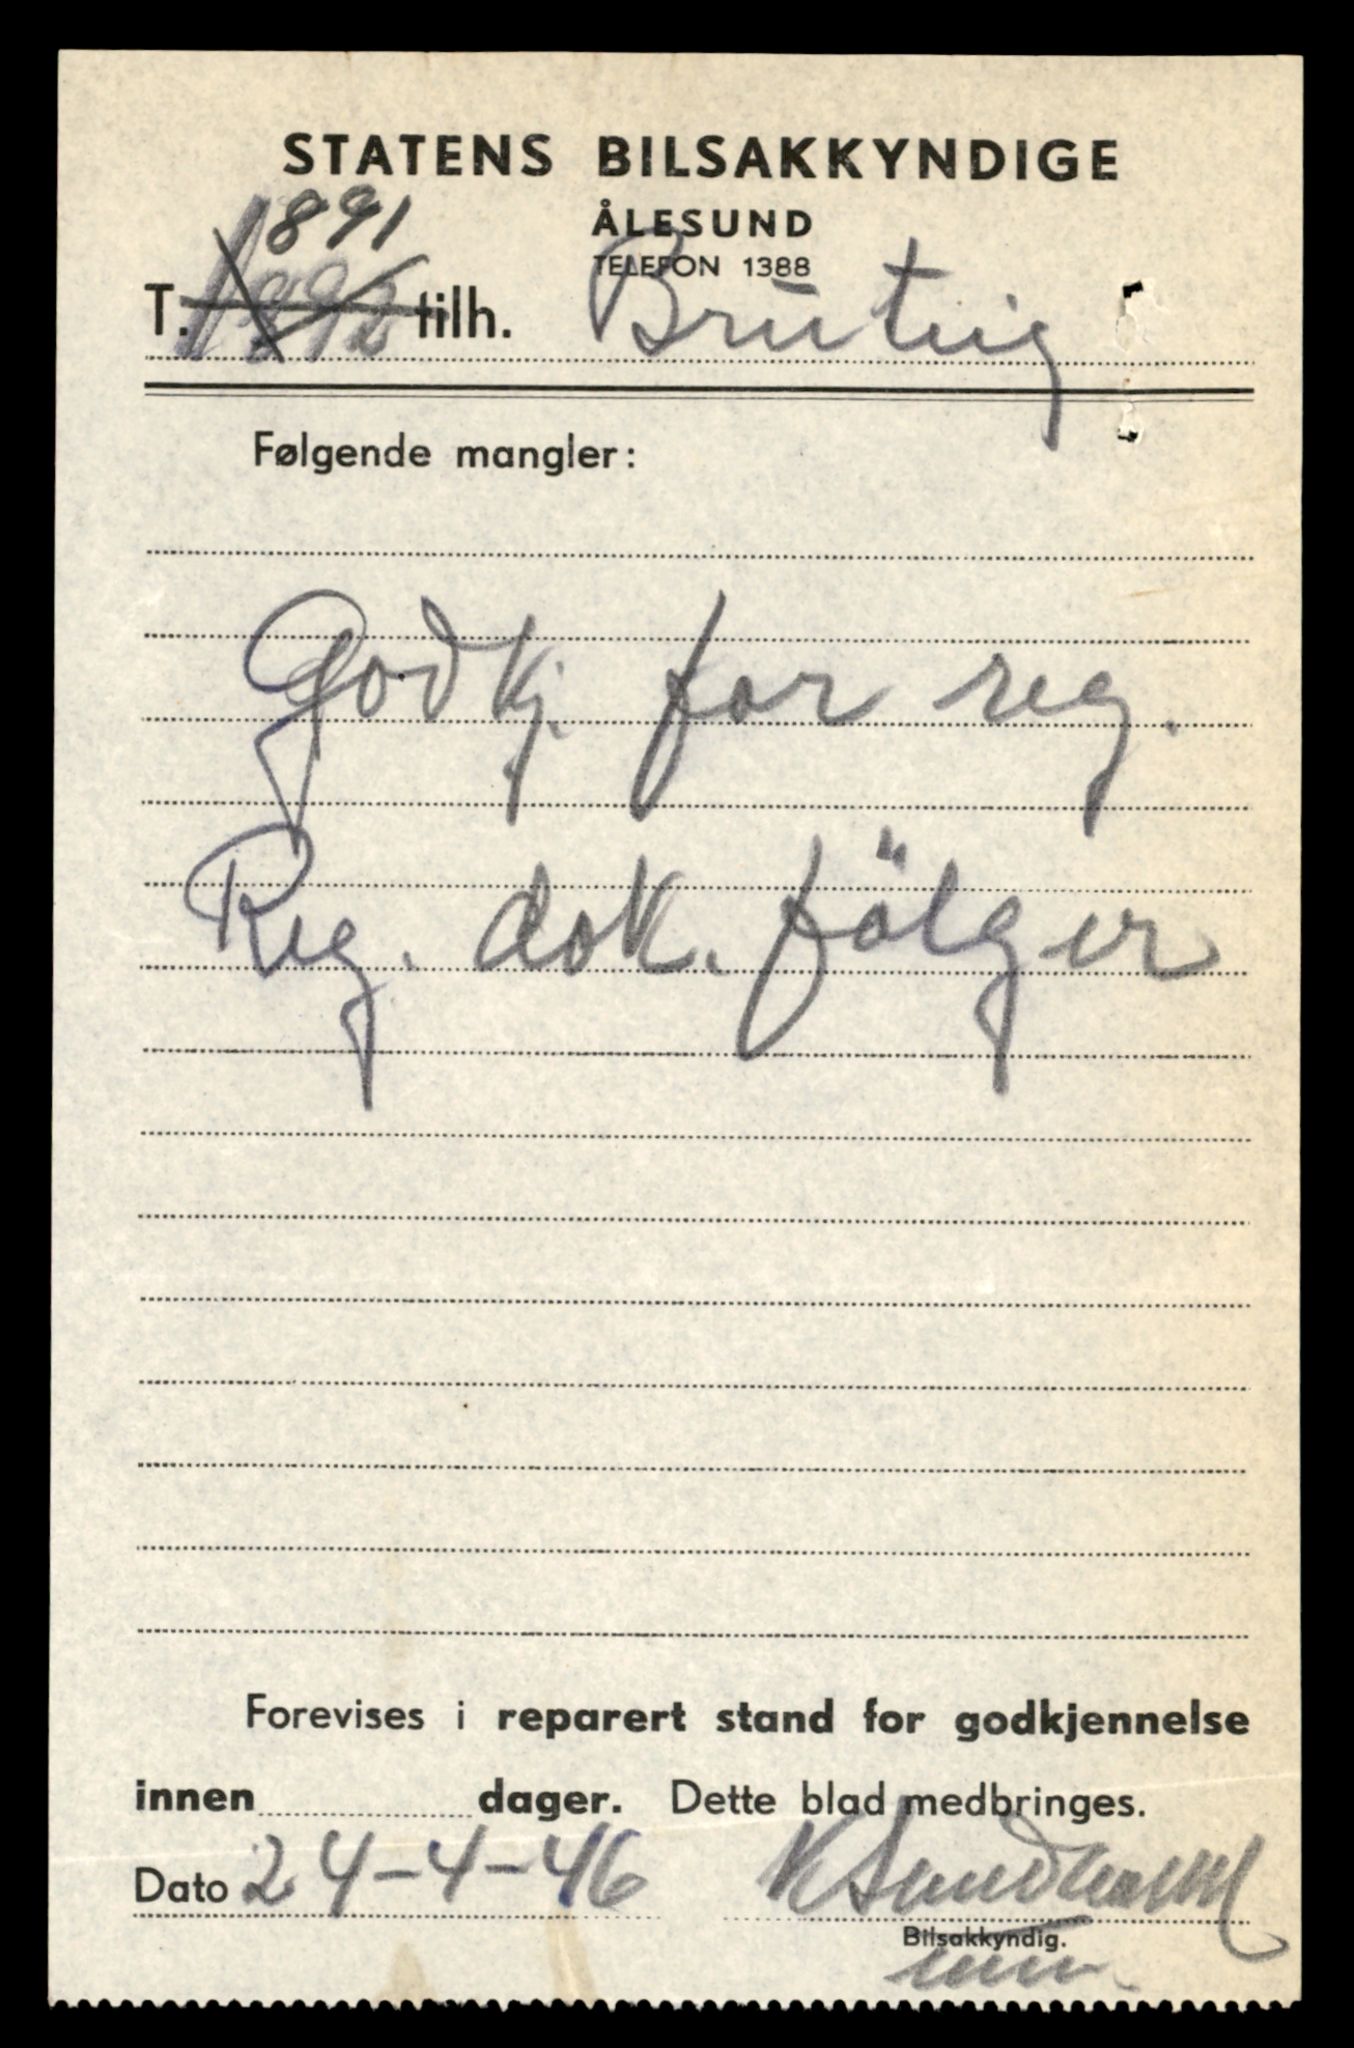 STATENS BILSAKKYNDIGE
ÅLESUND
TELEFON 1388
1891
T. 1892 tilh. Brütig
Følgende mangler:
Godkj. for reg.
Reg. dok. fölger
Forevises i reparert stand for godkjennelse
innen dager. Dette blad medbringes.
Dato 24-4-46 K Sundholm
Bilsakkyndig.